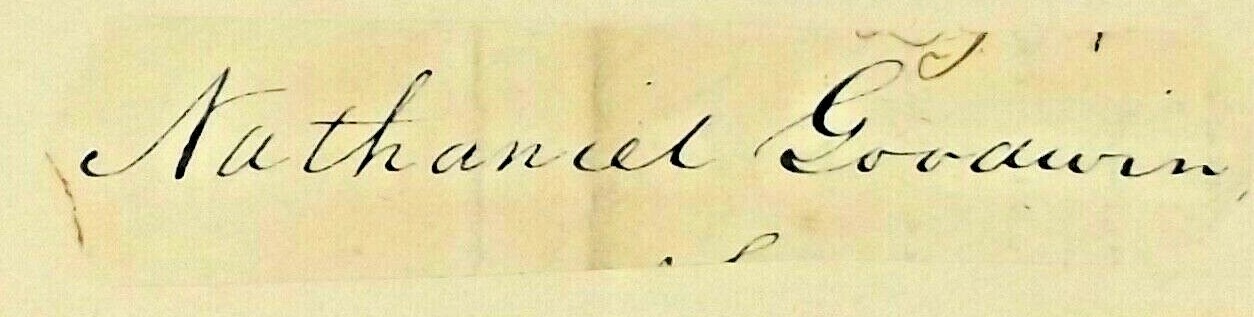 Nathaniel Goodwin,